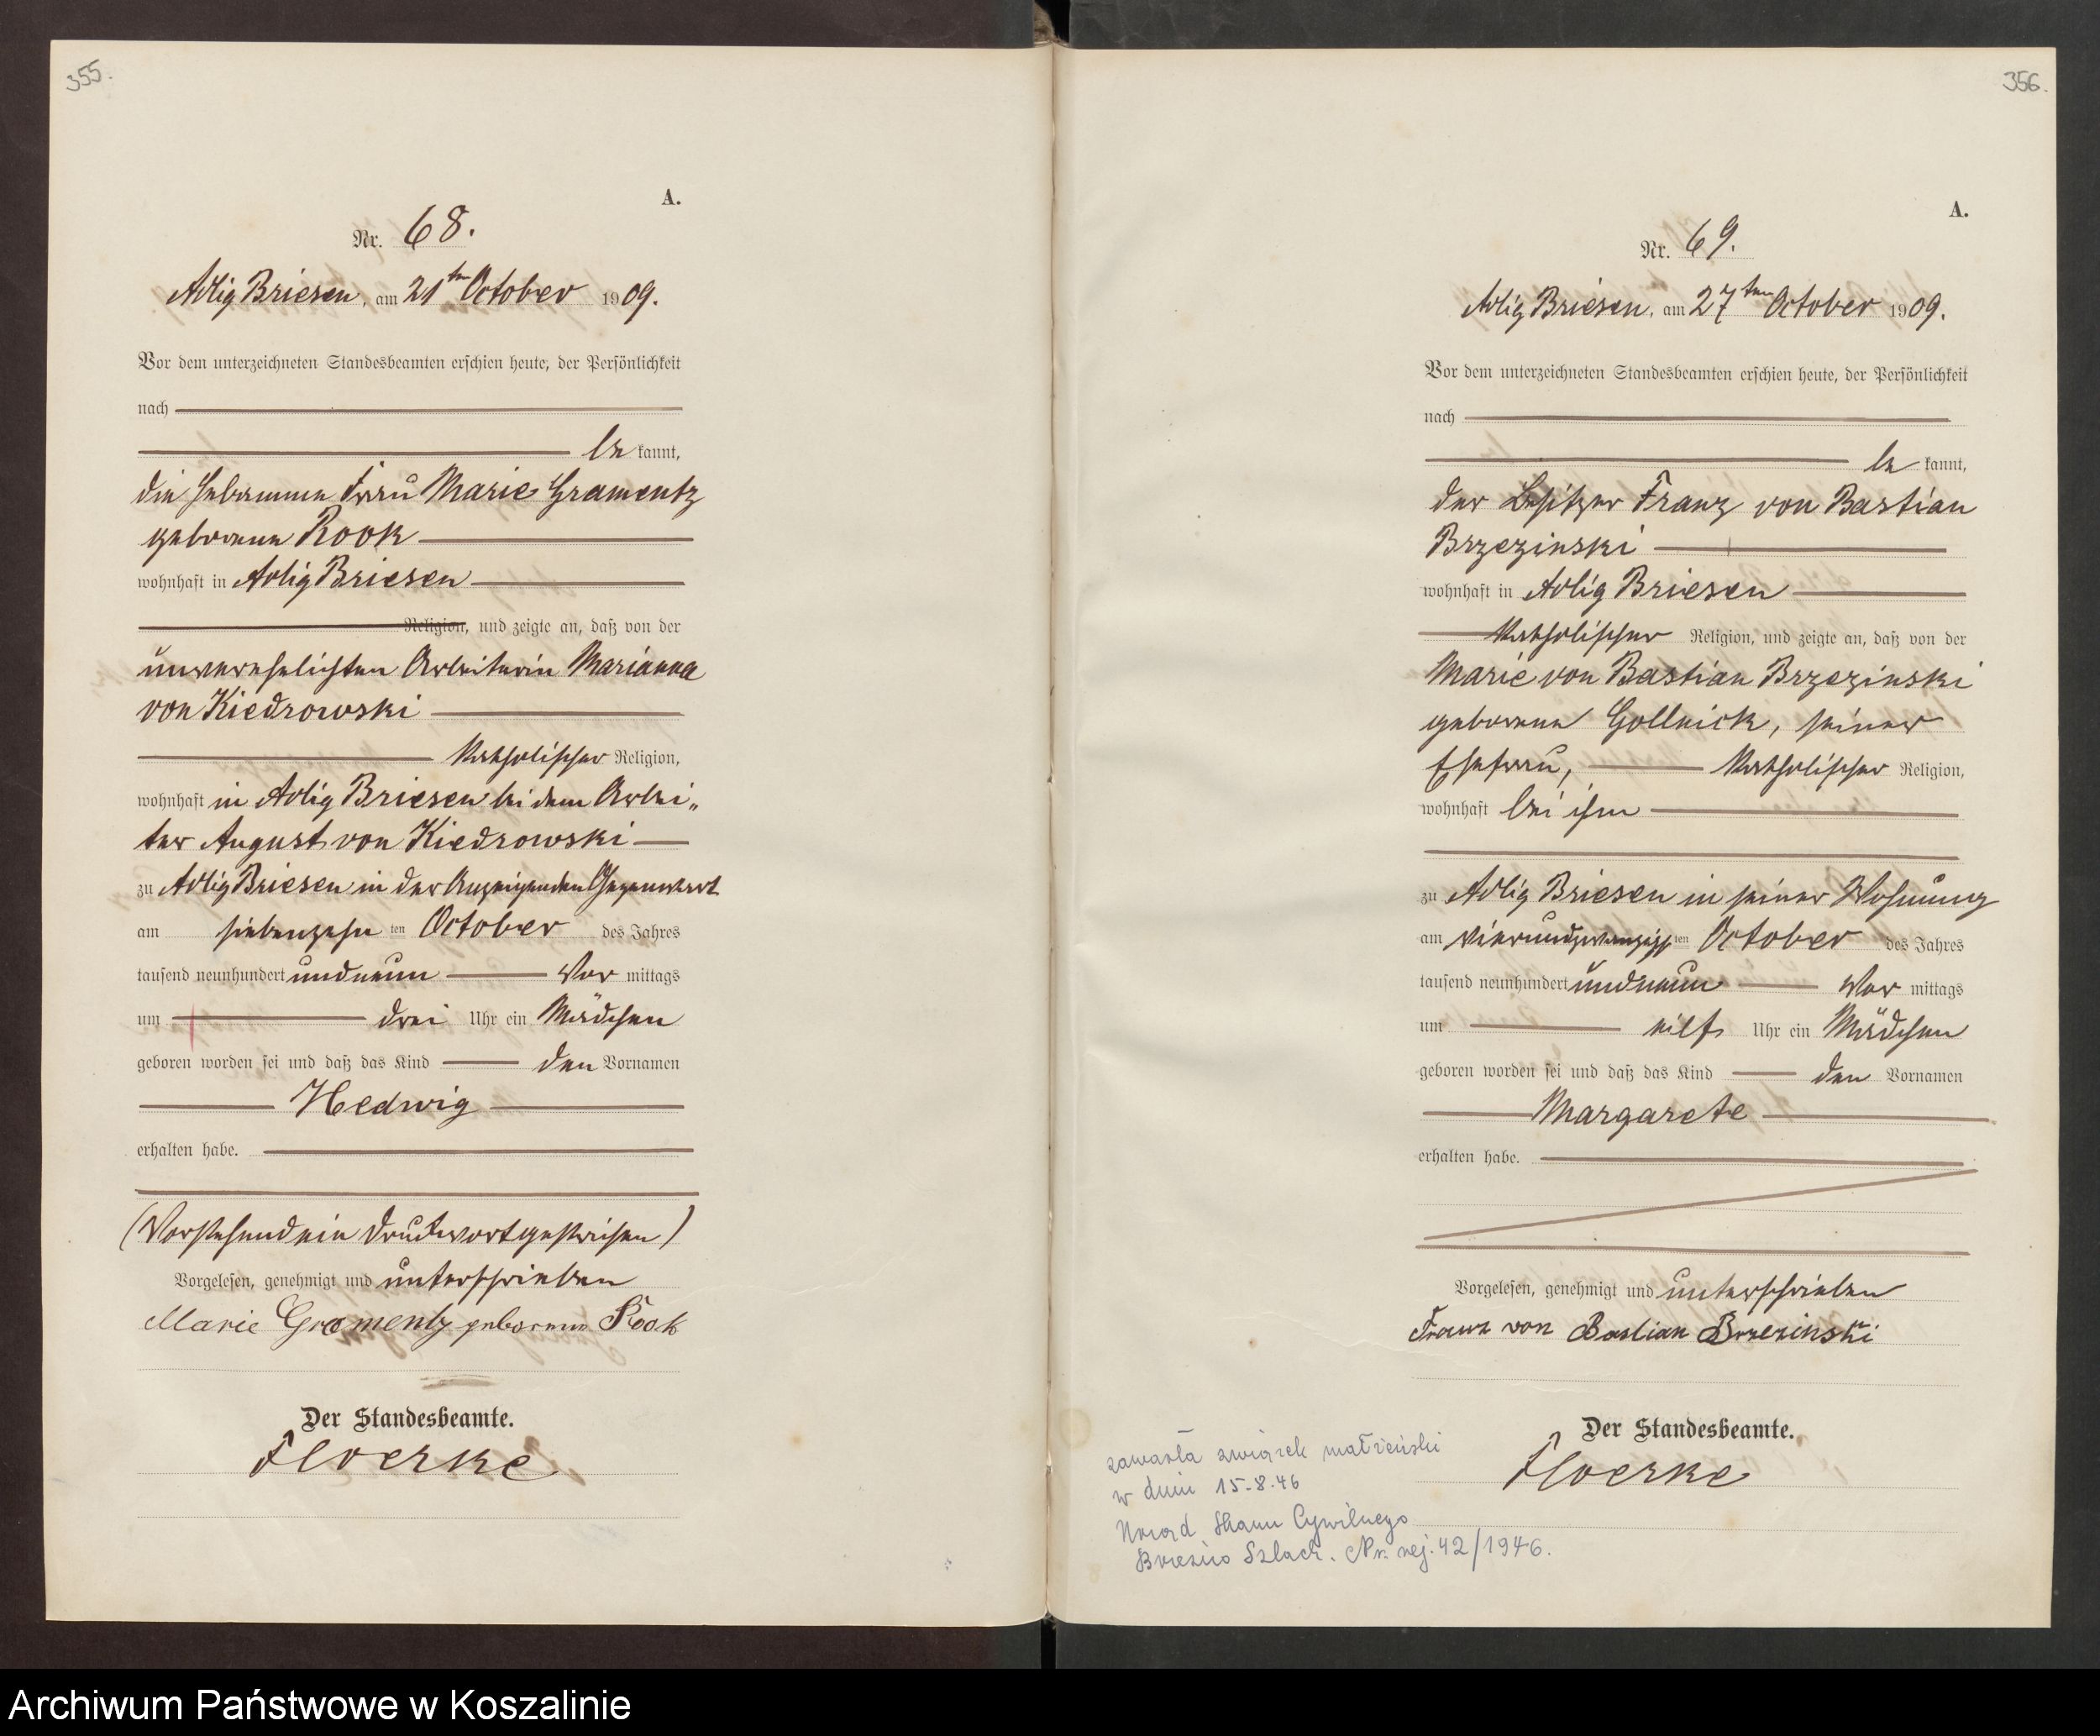 355.
A.
Nr. 68.
Adlig Briesen, am 21ten October 1909.
Vor dem unterzeichneten Standesbeamten erschien heute, der Persönlichkeit
nach
be kannt,
die Hebamme Frau Marie Gramentz
geborene Rook
wohnhaft in Adlig Briesen
Religion, und zeigte an, daß von der
unverehelichten Arbeiterin Marianna
von Kiedrowski
katholischer Religion,
wohnhaft in Adlig Briesen bei dem Arbei„
ter August von Kiedrowski
zu Adlig Briesen in der Anzeigenden Gegenwart
am siebenzehn ten October des Jahres
tausend neunhundert und neun Vor mittags
um drei Uhr ein Mädchen
geboren worden sei und daß das Kind den Vornamen
Hedwig
erhalten habe.
(Vorstehend ein Druckwort gestrichen)
Vorgelesen, genehmigt und unterschrieben
Marie Gramentz geborene Rook
Der Standesbeamte.
Floerke
356.
A.
Nr. 69.
Adlig Briesen, am 27ten October 1909.
Vor dem unterzeichneten Standesbeamten erschien heute, der Persönlichkeit
nach
be kannt,
der Besitzer Franz von Bastian
Brzezinski
wohnhaft in Adlig Briesen
katholischer Religion, und zeigte an, daß von der
Marie von Bastian Brzezinski
geborene Gollnick, seiner
Ehefrau, katholischer Religion,
wohnhaft bei ihm
zu Adlig Briesen in seiner Wohnung
am vierundzwanzigsten October des Jahres
tausend neunhundert und neun Vor mittags
um eilf Uhr ein Mädchen
geboren worden sei und daß das Kind den Vornamen
Margarete
erhalten habe.
Vorgelesen, genehmigt und unterschrieben
Franz von Bastian Brzezinski
Der Standesbeamte.
Floerke
zawarła związek małżeński
w dniu 15-8.46
Urząd Stanu Cywilnego
Brzeźno Szlach. Nr. rej. 42/1946.
Archiwum Państwowe w Koszalinie